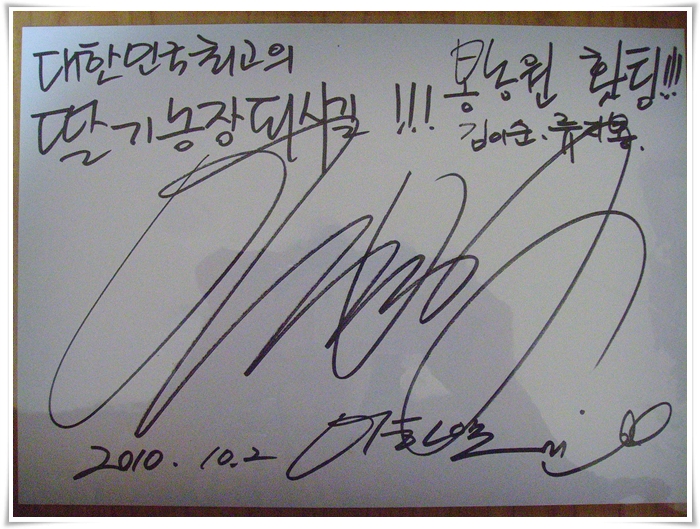 대한민국최고의
딸기농장되시길 !!!
봉농원 화팅!!!
김이순. 류지봉.
2010. 10. 2